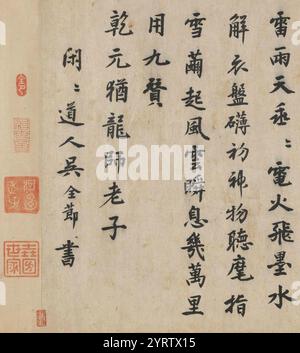 雷雨天垂〻電火飛墨水
解衣盤礴初神物聽麾指
雪繭起風雲瞬息幾萬里
用九贊
乾元猶龍師老子
閑〻道人吳全節書
alamy
Image ID: 2YRTX15
www.alamy.com